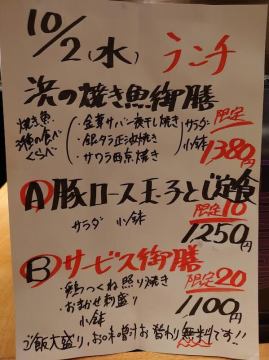 10/2(水) ランチ
浜の焼き魚御膳 限定
焼き魚 3種の食べくらべ
・金華サバ一夜干し焼き
・銀タラ正油焼き
・サワラ西京焼き
サラダ 小鉢
1380円
Ⓐ豚ロース玉子とじ定食
サラダ 小鉢 限定10
1250円
Ⓑサービス御膳
限定20
・鶏つくね照り焼き
・おまかせ刺盛り
小鉢
1,100円
ご飯大盛り、お味噌汁お替わり無料です!!